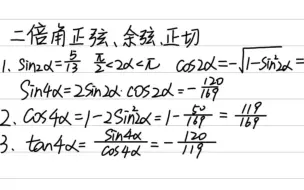 二倍角正弦、余弦、正切
1. Sin2α=5/13 π/2<2α<π cos2α=-√(1-Sin²2α)=
Sin4α=2Sin2α·cos2α=-120/169
2. Cos4α=1-2Sin²2α=1-50/169=119/169
3. tan4α=Sin4α/Cos4α=-120/119